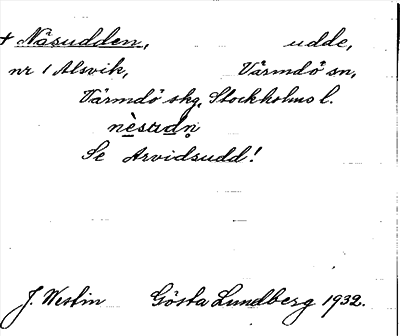 + Näsudden, udde,
nr 1 Alsvik, Värmdö sn,
Värmdö skg, Stockholms l.
nèsudn̥
Se Arvidsudd!
J. Westin Gösta Lundberg 1932.